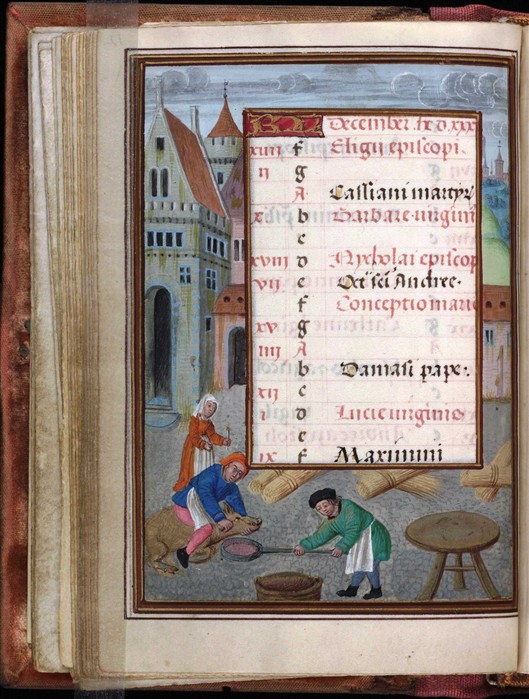 KL December xxx
xiii f Eligii episcopi.
ii g
A Cassiani martyr
x b Barbare uirgini
c
xviii d Nycholai episcop
vii e Oct' sci Andree.
f Conceptio marie
xv g
iiii A
b Damasi pape.
xii c
i d Lucie uirginis
e
ix f Maximini